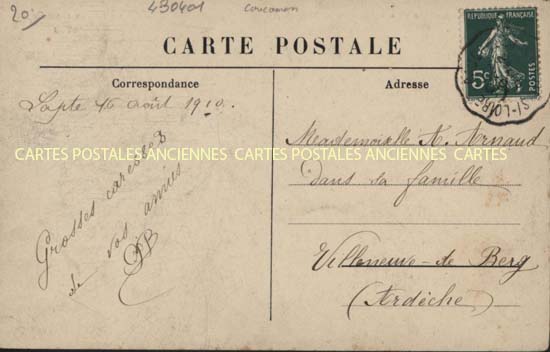 20
430401
Coucouron
CARTE POSTALE
REPUBLIQUE FRANÇAISE
5c
POSTES
ST-LOIRE
Correspondance
Adresse
Lapte 16 août 1910.
Grosses caresses
de vos amies
Mademoiselle A. Arnaud
dans sa famille
Villeneuve-de Berg
(Ardèche)
CARTES POSTALES ANCIENNES CARTES POSTALES ANCIENNES CARTES